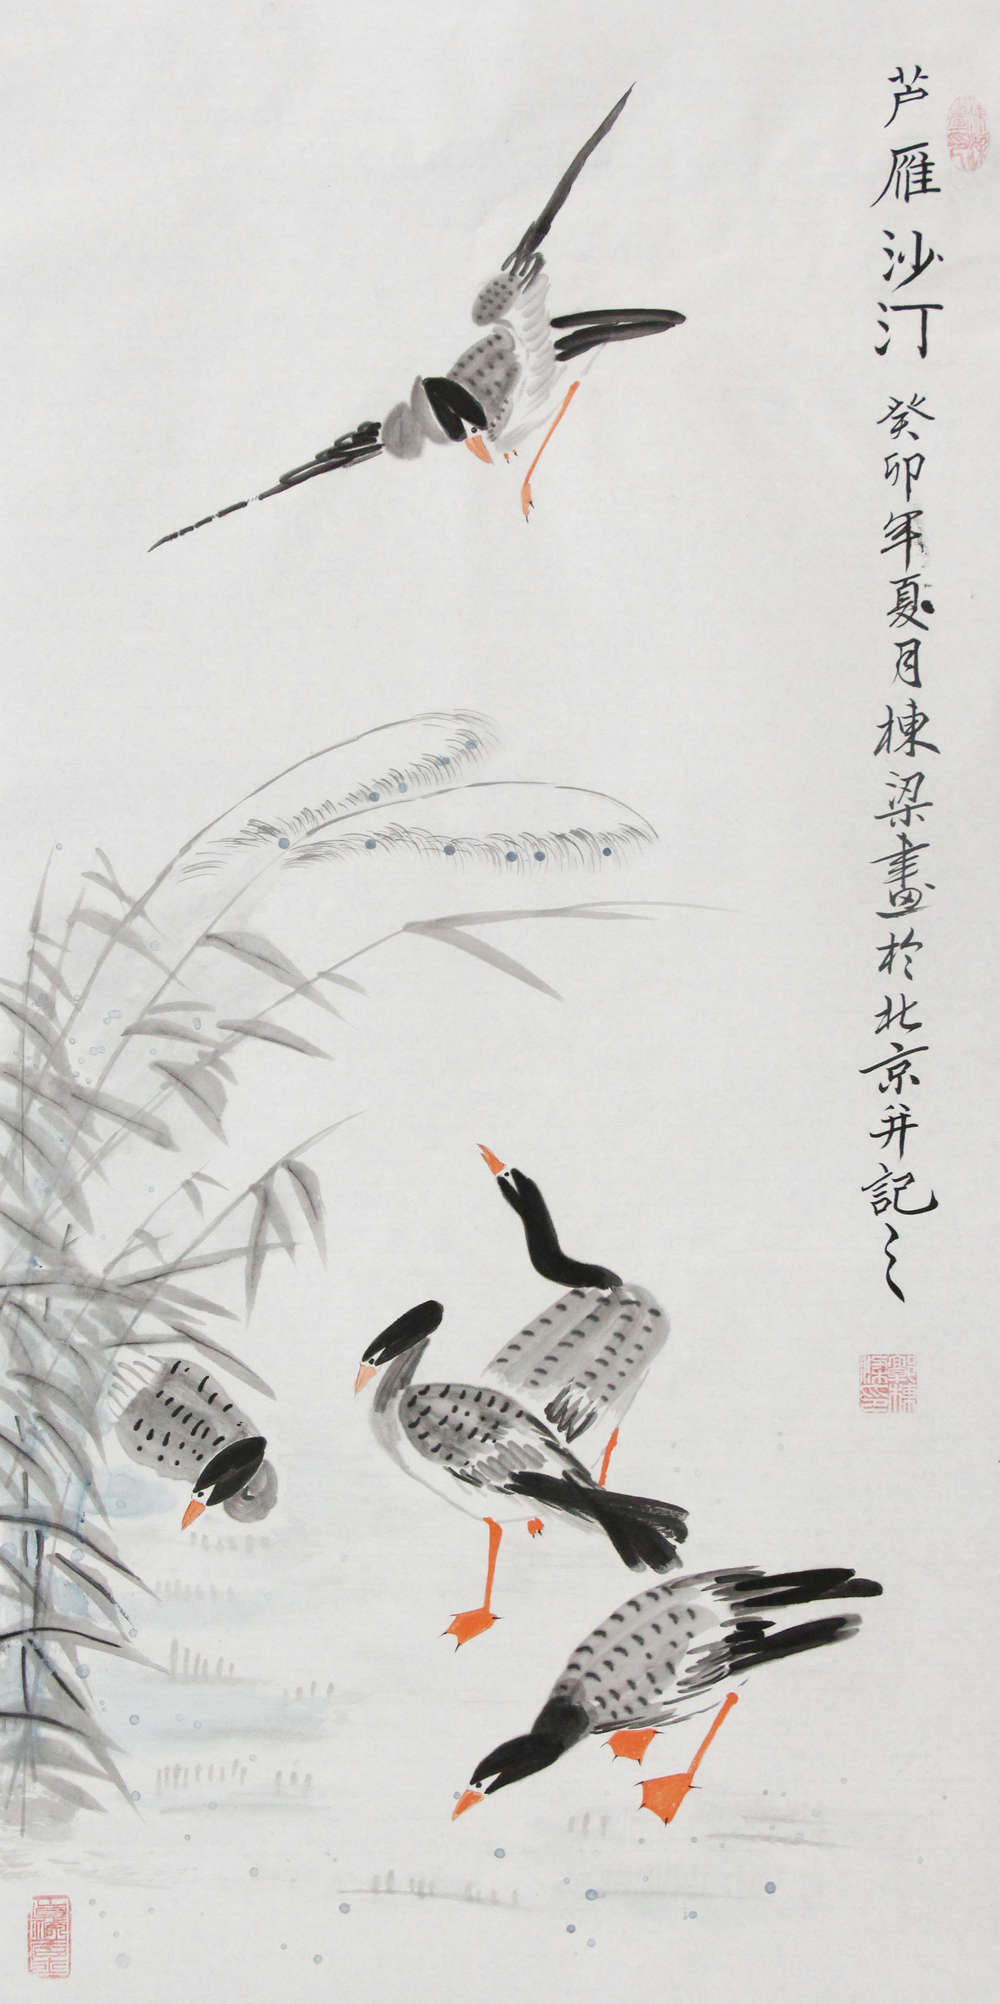 芦雁沙汀 癸卯年夏月棟梁畫於北京并記之